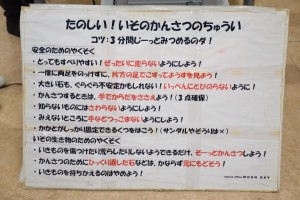 たのしい！いそのかんさつのちゅうい
コツ：3分間じーっとみつめるのダ！
安全のためのやくそく
・とってもすべりやすい！ぜったいに走らないようにしよう！
・一度に両足をのっけずに、片方の足でこすってようすを見よう！
・大きい石も、ぐらぐら不安定かもしれない！いっぺんにとびのらないように！
・かんさつするときは、手でからだをささえよう！（3点確保）
・知らないものにはさわらないようにしよう！
・みえないところに手などつっこまないようにしよう！
・かかとがしっかり固定できるくつをはこう！（サンダルやぞうりは×）
いその生き物のためのやくそく
・いきものを傷つけたり荒らしたりしないようできるだけ、そーっとかんさつしよう！
・かんさつのためにひっくり返した石などは、かならず元にもどそう！
・いきものを持ちかえるのはやめよう！